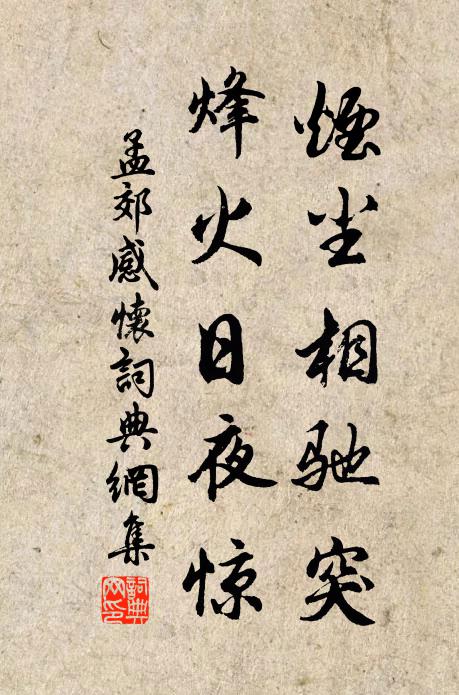 煙尘相驰突
烽火日夜惊
孟郊感懷詞典網集
詞典
网印